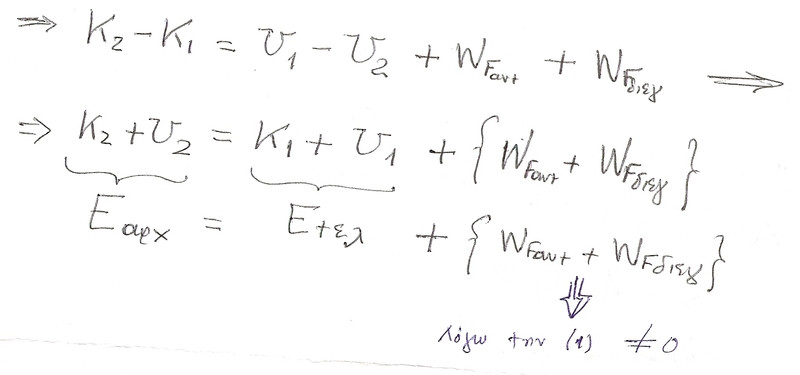 ⇒ K₂ − K₁ = U₁ − U₂ + W_Fαντ + W_Fδιεγ ⟹
⇒ K₂ + U₂ = K₁ + U₁ + {W_Fαντ + W_Fδιεγ}
Eαρχ = Eτελ + {W_Fαντ + W_Fδιεγ}
⇓
λόγω την (1) ≠ 0